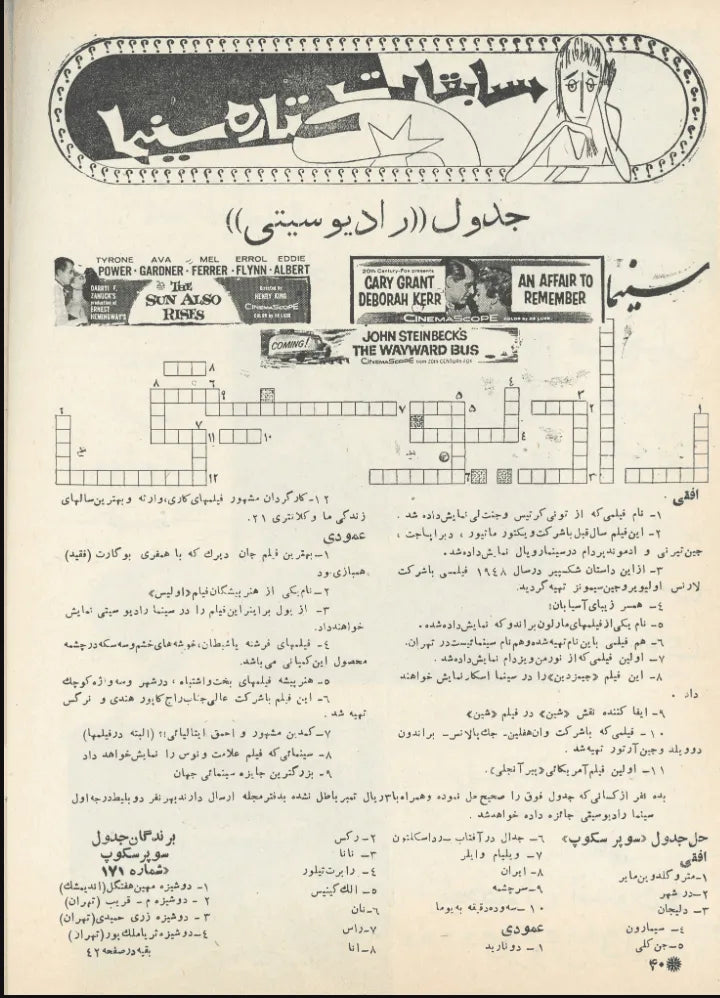 مسابقات ستاره سینما
جدول ((رادیو سیتی))
سینما
TYRONE AVA MEL ERROL EDDIE
POWER · GARDNER · FERRER · FLYNN · ALBERT
DARRYL F.
ZANUCK'S
production of
ERNEST
HEMINGWAY'S
THE
SUN ALSO
RISES
Directed by
HENRY KING
CINEMASCOPE
COLOR by DE LUXE
20th Century-Fox presents
CARY GRANT
DEBORAH KERR
AN AFFAIR TO
REMEMBER
CINEMASCOPE COLOR by DE LUXE
COMING!
JOHN STEINBECK'S
THE WAYWARD BUS
CINEMASCOPE
افقی
۱ـ نام فیلمی‌که از تونی‌کرتیس وجنت‌لی نمایش‌داده شد .
۲ـ این‌فیلم سال‌قبل باشرکت‌ویکتور ماتیور ، دبراپاجت ،
جین‌تیرنی و ادموندپردام درسینمارویال نمایش‌داده‌شد.
۳ـ ازاین داستان شکسپیر درسال ۱۹۴۸ فیلمی باشرکت
لارنس اولیویروجین‌سیمونز تهیه‌گردید.
۴ـ همسر زیبای‌آسیابان!
۵ـ نام یکی‌ازفیلمهای‌مارلون‌براندو‌که نمایش‌داده‌شده .
۶ـ هم فیلمی باین‌نام‌تهیه‌شده‌وهم‌نام سینمائیست‌در تهران.
۷ـ اولین فیلمی‌که‌از نورمن‌ویزدام نمایش‌داده‌شد .
۸ـ این فیلم «جیمزدین»را در سینما اسکار نمایش خواهند
داد .
۹ـ ایفا کننده نقش «شین» در فیلم «شین»
۱۰ـ فیلمی‌که باشرکت وان‌هفلین‌ـ جك‌پالانس‌ـ براندون
دوویلد وجین‌آرتور تهیه‌شد .
۱۱ـ اولین فیلم‌آمریکائی«پیرآنجلی».
۱۲ـ کارگردان مشهور فیلمهای‌کاری،وارثه و بهترین‌سالهای
زندگی ما وکلانتری ۲۱.
عمودی
۱ـ بهترین فیلم جان دیرك که با همفری بوگارت (فقید)
همبازی‌بود
۲ـ نام‌یکی از هنرپیشگان‌فیلم«اولیس»
۳ـ از یول براینراین‌فیلم را در سینما رادیو سیتی نمایش
خواهندداد.
۴ـ فیلمهای فرشته یاشیطان،خوشه‌های‌خشم‌وسه‌سکه‌درچشمه
محصول این‌کمپانی می‌باشد.
۵ـ هنرپیشه فیلمهای بخت‌واشتباه ، درشهر وسه‌واژه‌کوچك
۶ـ این فیلم باشرکت عالی‌جناب‌راج‌کاپور هندی و نرگس
تهیه شد .
۷ـ کمدین مشهور و احمق ایتالیائی!؟ (البته درفیلمها)
۸ـ سینمائی‌که فیلم علامت ونوس را نمایش‌خواهد داد
۹ـ بزرگترین جایزه سینمائی جهان
بده نفر ازکسانی‌که جدول فوق را صحیح‌حل نموده وهمراه‌با۳ریال تمبرباطل نشده بدفترمجله ارسال دارندبهرنفر دوبلیط‌درجه‌اول
سینما رادیوسیتی جائزه داده خواهدشد.
حل‌جدول «سوپر سکوپ»
افقی
۱ـ متروگلدوین‌مایر
۲ـ در شهر
۳ـ دلیجان
۴ـ سیمارون
۵ـ جن‌کلی
۶ـ جدال درآفتاب
۷ـ ویلیام وایلر
۸ـ ایران
۹ـ سرچشمه
۱۰ـ سه‌وده‌دقیقه به‌یوما
عمودی
۱ـ دونارید
۲ـ رکس
۳ـ نانا
۴ـ رابرت‌تیلور
۵ـ الك‌گینیس
۶ـ نان
۷ـ راس
۸ـ انا
برندگان‌جدول
سوپرسکوپ
«شماره ۱۷۱
۱ـ دوشیزه مهین‌هفتگل(اندیمشك)
۲ ـ دوشیزه م ـ قریب (تهران)
۳ ـ دوشیزه زری حمیدی(تهران)
۴ـ دوشیزه ثریاملك‌پور(تهران)
بقیه‌درصفحه ۴۲
۴۰